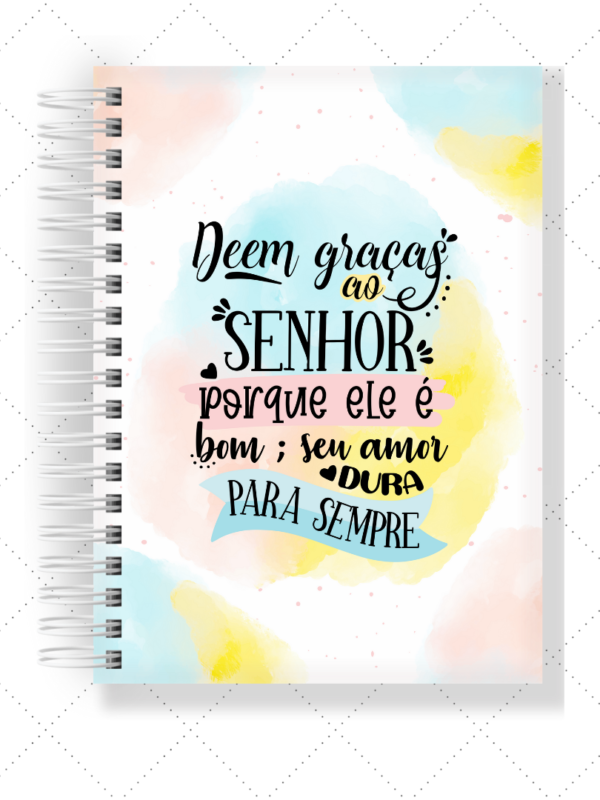 Deem graças
ao
SENHOR
porque ele é
bom ; seu amor
DURA
PARA SEMPRE